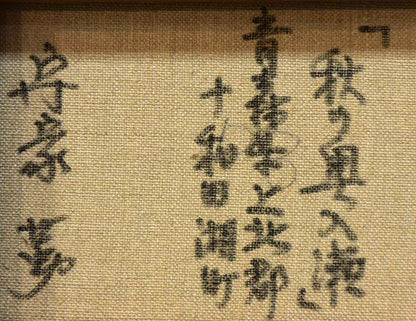 「秋の奥入瀬」
青森県上北郡
十和田湖町